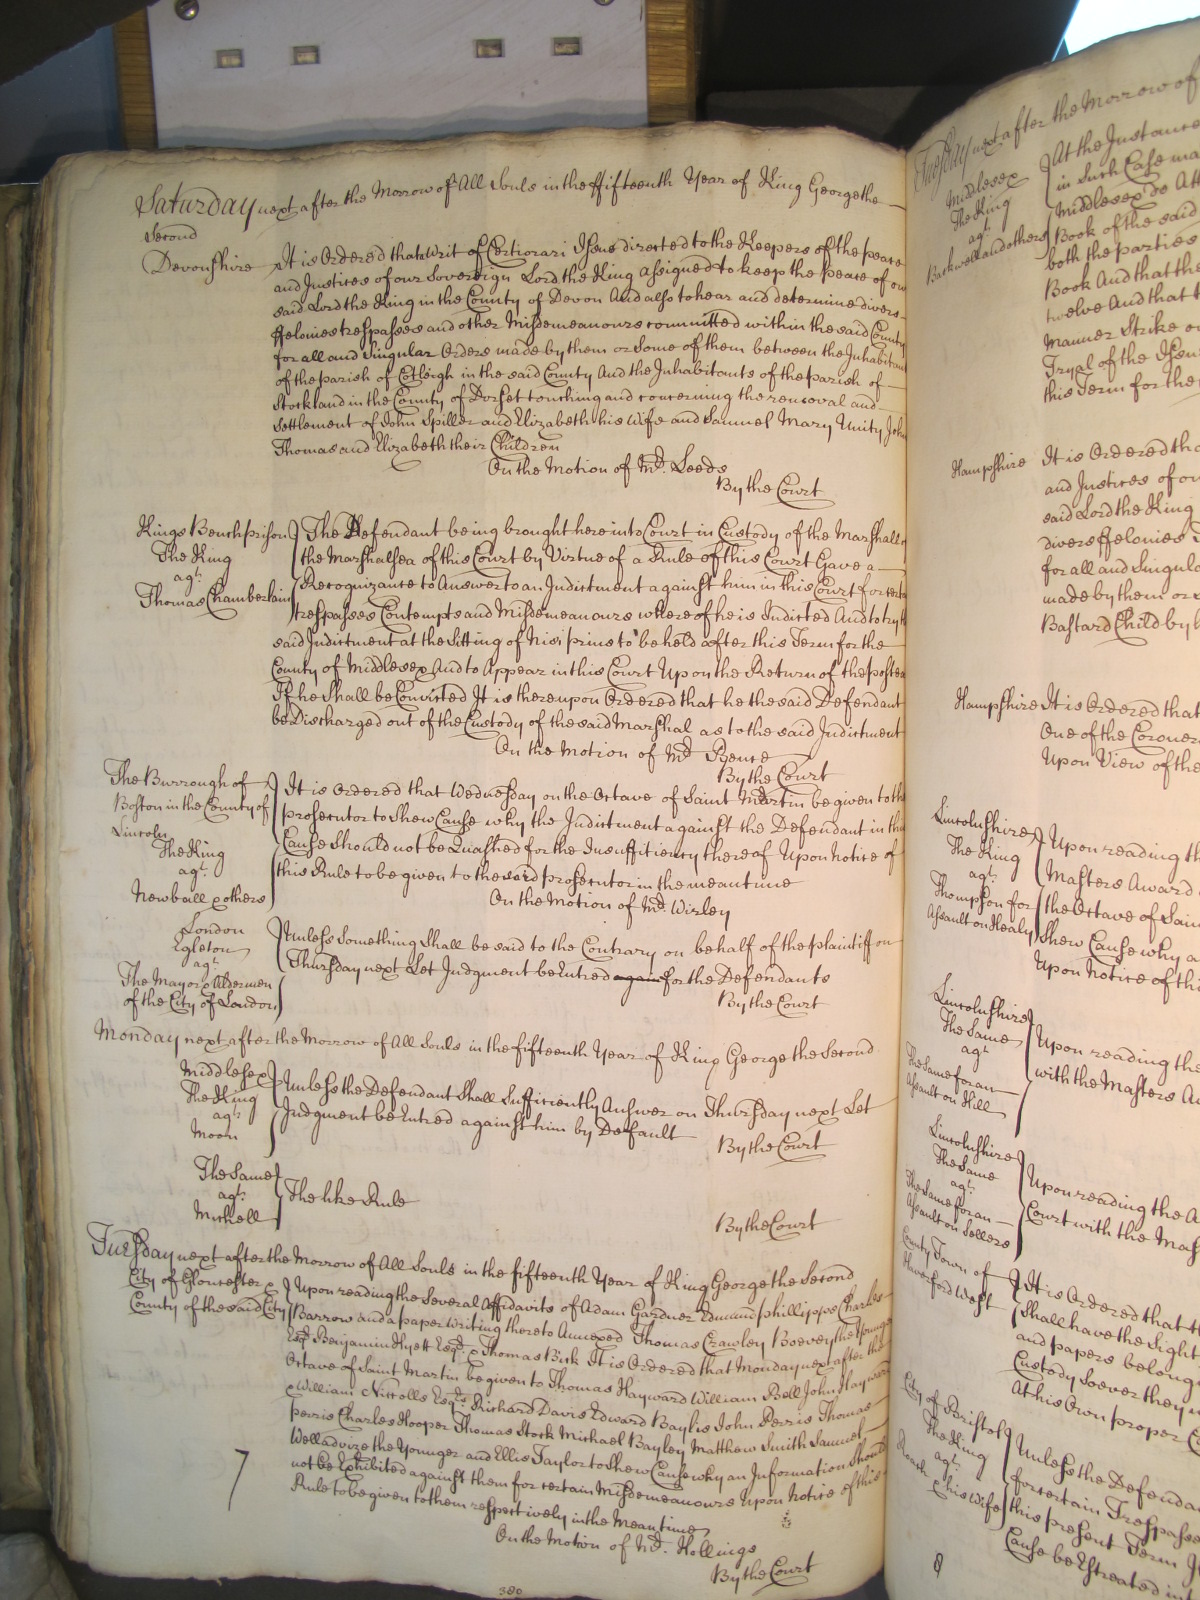 Saturday next after the Morrow of All Souls in the ffifteenth Year of King George the
Second
Devonshire It is Ordered that Writ of Certiorari Issue directed to the Keepers of the peace
and Justices of our Sovereign Lord the King assigned to keep the Peace of our
said Lord the King in the County of Devon And also to hear and determine divers
ffelonies trespasses and other Misdemeanours committed within the said County
for all and Singular Orders made by them or Some of them between the Inhabitants
of the parish of Cotleigh in the said County And the Inhabitants of the parish of
Stockland in the County of Dorset touching and concerning the removal and
Settlement of John Spiller and Elizabeth his Wife and Samuel Mary Unity John
Thomas and Elizabeth their Children
On the Motion of Mr. Leeds
By the Court
Kings Bench prison
The King
agt.
Thomas Chamberlain
The Defendant being brought here into Court in Custody of the Marshall of
the Marshalsea of this Court by Virtue of a Rule of this Court Gave a
Recognizance to Answer to an Indictment against him in this Court for certain
trespasses Contempts and Misdemeanours whereof he is Indicted And to try the
said Indictment at the Sitting of Nisi prius to be held after this Term for the
County of Middlesex And to Appear in this Court Upon the Return of the postea
If he Shall be Convicted It is thereupon Ordered that he the said Defendant
be Discharged out of the Custody of the said Marshal as to the said Indictment
On the Motion of Mr.
By the Court
The Burrough of
Boston in the County of
Lincoln
The King
agt.
Newball & others
It is Ordered that Wednesday on the Octave of Saint Martin be given to the
prosecutor to Shew Cause why the Indictment against the Defendant in this
Cause Should not be Quashed for the Insufficiency thereof Upon Notice of
this Rule to be given to the said prosecutor in the meantime
On the Motion of Mr. Wirley
London
Egleton
agt.
The Mayor & Aldermen
of the City of London
Unless Something Shall be said to the Contrary on behalf of the plaintiff on
Thursday next Let Judgment be Entred again for the Defendants
By the Court
Monday next after the Morrow of All Souls in the fifteenth Year of King George the Second
Middlesex
The King
agt.
Moon
Unless the Defendant Shall Sufficiently Answer on Thursday next Let
Judgment be Entred against him by Default
By the Court
The Same
agt.
Michell
The like Rule
By the Court
Tuesday next after the Morrow of All Souls in the fifteenth Year of King George the Second
City of Gloucester &
County of the said City
Upon reading the Several Affidavits of Adam Gardner Edmund phillipps Charles
Barrow and a paper Writing thereto Annexed Thomas Crawley Boevey the Younger
Esqr. Benjamin Hyett Esqr. & Thomas Bick It is Ordered that Monday next after the
Octave of Saint Martin be given to Thomas Hayward William Bell John Hayward
& William Niccolls Esqrs. Richard Davis Edward Baylis John Perris Thomas
perris Charles Hooper Thomas Stock Michael Bayley Matthew Smith Samuel
Welladvize the Younger and Ellis Taylor to Shew Cause why an Information Should
not be Exhibited against them for certain Misdemeanours Upon Notice of this
Rule to be given to them respectively in the Mean time
On the Motion of Mr. Hollings
By the Court
7
380
Tuesday next after the Morrow of
Middlesex
The King
agt.
Backwell and others
At the Instance
in Such Case ma
Middlesex do Att
Book of the said
both the parties
Book And that the
twelve And that t
Manner Strike o
Tryal of the Issu
this Term for the
Hampshire It is Ordered tha
and Justices of ou
said Lord the King
divers ffelonies
for all and Singula
made by them or S
Bastard Child by
Hampshire It is Ordered that
One of the Coroner
Upon View of the
Lincolnshire
The King
agt.
Thompson for
Assault on Healy
Upon reading th
Masters Award
the Octave of Sain
Shew Cause why a
Upon Notice of thi
Lincolnshire
The Same
agt
The Same for an
Assault on Hill
Upon reading the
with the Masters A
Lincolnshire
The Same
agt.
The Same for an
Assault on Sellers
Upon reading the A
Court with the Mas
County Town of
Haverford West
It is Ordered that t
Shall have the Sight
and papers belong
Custody soever they
At his Own proper C
City of Bristol
The King
agt.
Roach & his Wife
Unless the Defenda
for certain Trespasse
this present Term
Cause be Estreated int
8